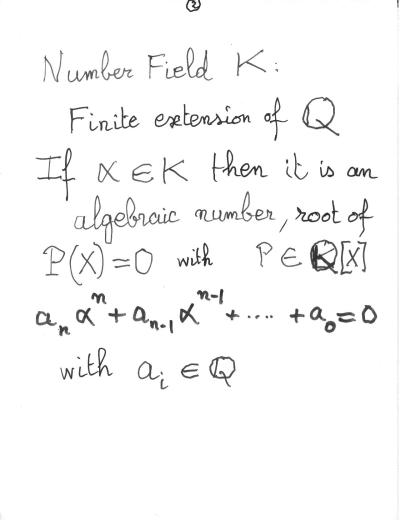 ②
Number Field K:
Finite extension of Q
If α ∈ K then it is an
algebraic number, root of
P(X)=0 with P ∈ Q[X]
aₙ αⁿ + aₙ₋₁ αⁿ⁻¹ + .... + a₀ = 0
with aᵢ ∈ Q